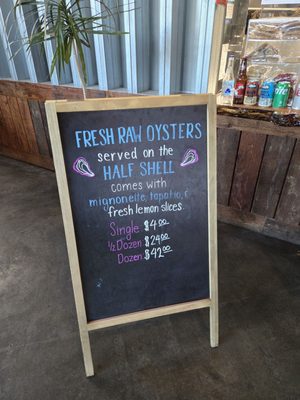 FRESH RAW OYSTERS
served on the
HALF SHELL
comes with
mignonette, tapatio, &
fresh lemon slices.
Single $4.00
1/2 Dozen $24.00
Dozen $42.00